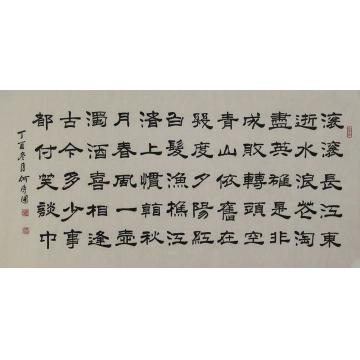 滚滚長江東
逝水浪花淘
盡英雄是非
成敗轉頭空
青山依舊在
幾度夕陽紅
白髮漁樵江
渚上慣看秋
月春風一壺
濁酒喜相逢
古今多少事
都付笑談中
丁酉冬月何